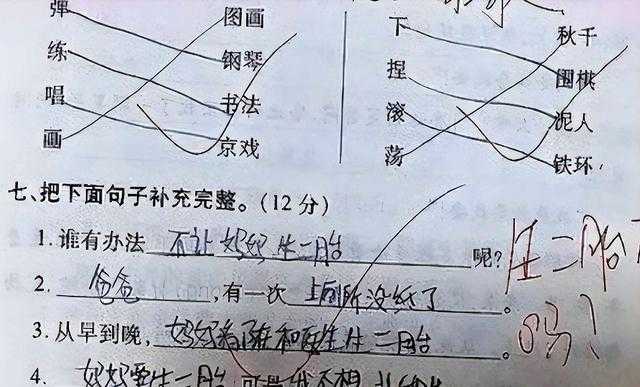 弹 图画 下 秋千
练 钢琴 捏 围棋
唱 书法 滚 泥人
画 京戏 荡 铁环
七、把下面句子补充完整。(12分)
1.谁有办法 不让妈妈生二胎 呢?
2. 爸爸 ,有一次 上厕所没纸了 。
3.从早到晚, 妈妈都陪和在生二胎 。
4. 妈妈要生二胎 可是我不想
生二胎了
吗?